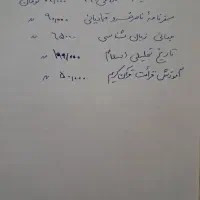 سفرنامهٔ ناصرخسرو قبادیانی ۹۰,۰۰۰ 〃
مبانی زبان شناسی ۶۵۰۰۰ 〃
تاریخ تحلیلی اسلام ۹۹/۰۰۰ 〃
آموزش قرائت قرآن کریم ۵۰,۰۰۰ 〃